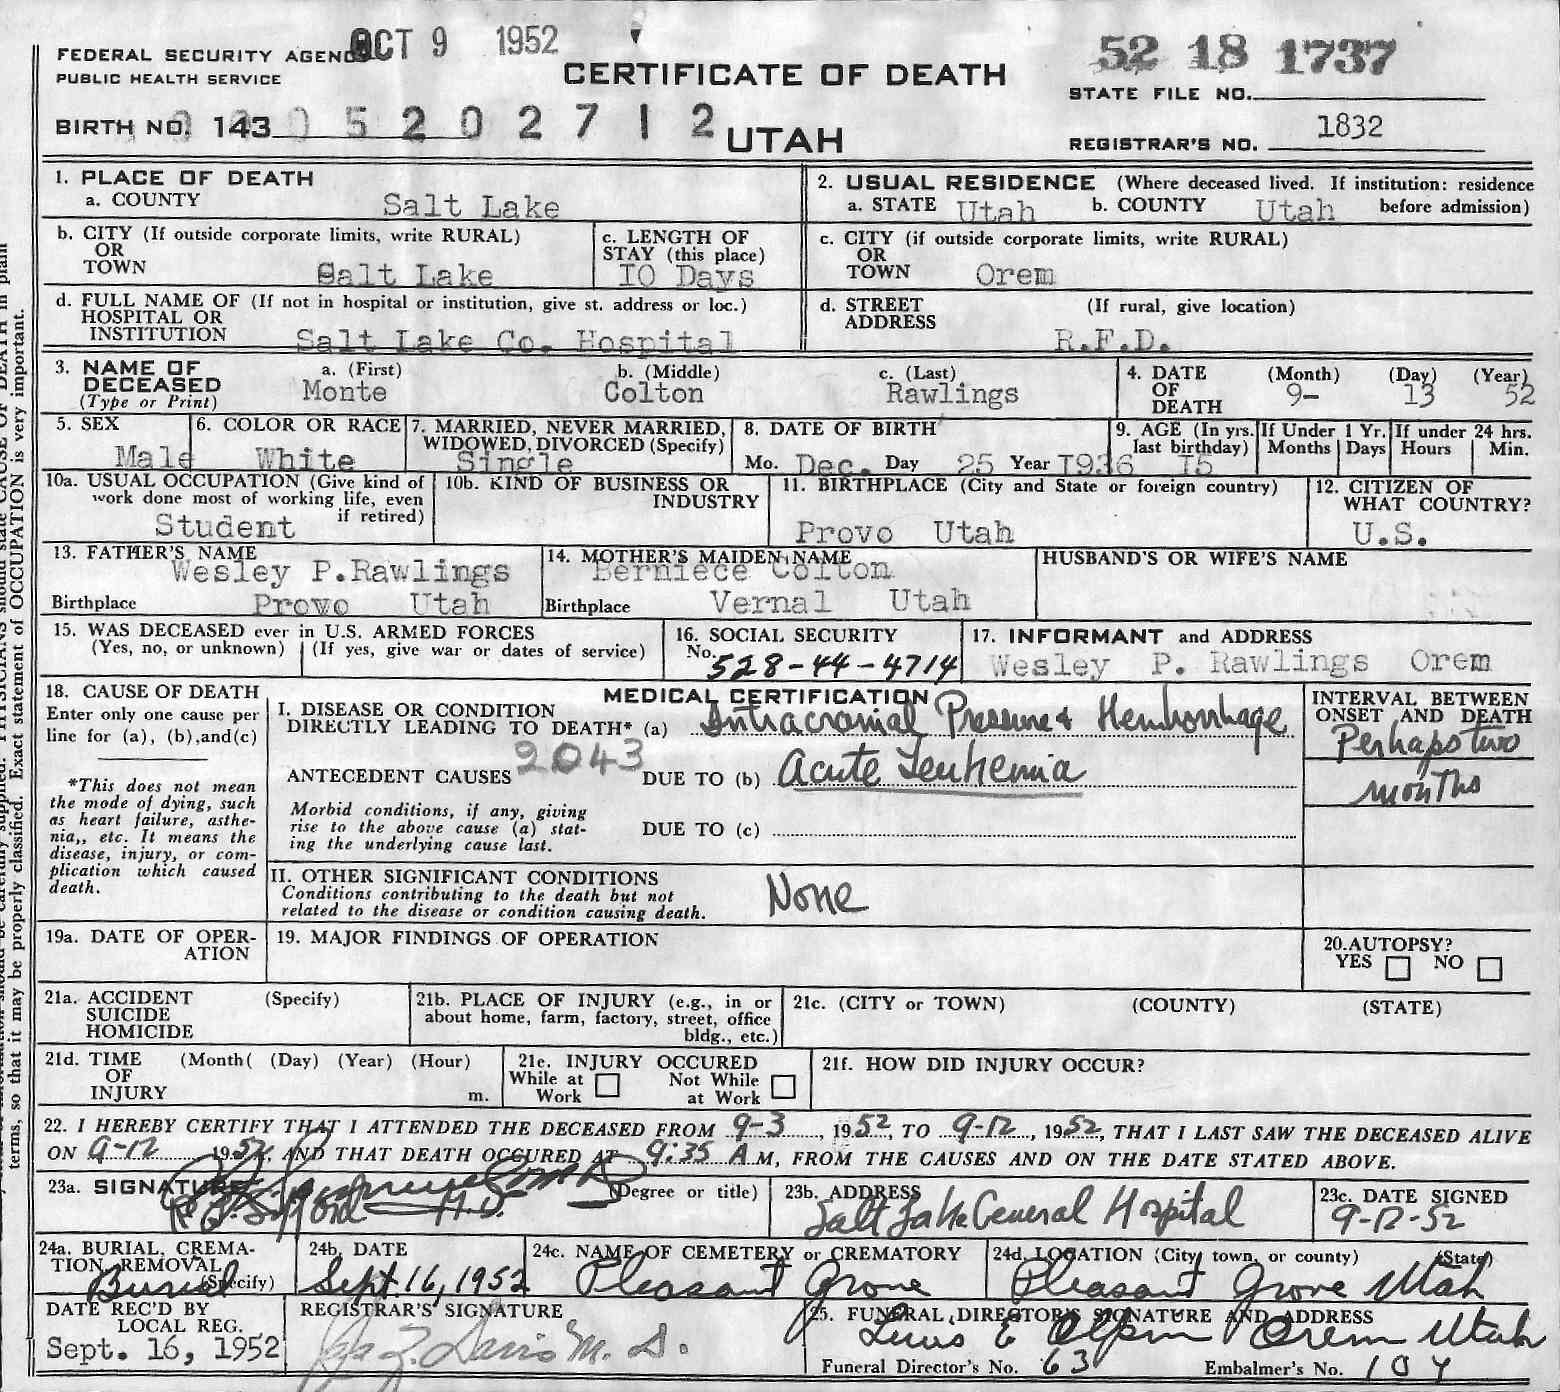 OCT 9 1952
FEDERAL SECURITY AGENC
PUBLIC HEALTH SERVICE
CERTIFICATE OF DEATH
52 18 1737
STATE FILE NO.
BIRTH NO. 143 0 5 2 0 2 7 1 2
UTAH
1832
REGISTRAR'S NO.
1. PLACE OF DEATH
a. COUNTY Salt Lake
2. USUAL RESIDENCE (Where deceased lived. If institution: residence
a. STATE Utah b. COUNTY Utah before admission)
b. CITY (If outside corporate limits, write RURAL)
OR
TOWN Salt Lake
c. LENGTH OF
STAY (this place)
IO Days
c. CITY (if outside corporate limits, write RURAL)
OR
TOWN Orem
d. FULL NAME OF (If not in hospital or institution, give st. address or loc.)
HOSPITAL OR
INSTITUTION Salt Lake Co. Hospital
d. STREET (If rural, give location)
ADDRESS R.F.D.
3. NAME OF
DECEASED
(Type or Print)
a. (First) b. (Middle) c. (Last)
Monte Colton Rawlings
4. DATE (Month) (Day) (Year)
OF 9- 13 52
DEATH
5. SEX
Male
6. COLOR OR RACE
White
7. MARRIED, NEVER MARRIED,
WIDOWED, DIVORCED (Specify)
Single
8. DATE OF BIRTH
Mo. Dec. Day 25 Year I936
9. AGE (In yrs.
last birthday)
I5
If Under 1 Yr.
Months Days
If under 24 hrs.
Hours Min.
10a. USUAL OCCUPATION (Give kind of
work done most of working life, even
if retired)
Student
10b. KIND OF BUSINESS OR
INDUSTRY
11. BIRTHPLACE (City and State or foreign country)
Provo Utah
12. CITIZEN OF
WHAT COUNTRY?
U.S.
13. FATHER'S NAME
Wesley P.Rawlings
Birthplace Provo Utah
14. MOTHER'S MAIDEN NAME
Berniece Colton
Birthplace Vernal Utah
HUSBAND'S OR WIFE'S NAME
15. WAS DECEASED ever in U.S. ARMED FORCES
(Yes, no, or unknown) (If yes, give war or dates of service)
16. SOCIAL SECURITY
No. 528-44-4714
17. INFORMANT and ADDRESS
Wesley P. Rawlings Orem
18. CAUSE OF DEATH
Enter only one cause per
line for (a), (b),and(c)
*This does not mean
the mode of dying, such
as heart failure, asthe-
nia,, etc. It means the
disease, injury, or com-
plication which caused
death.
MEDICAL CERTIFICATION
I. DISEASE OR CONDITION
DIRECTLY LEADING TO DEATH* (a) Intracranial Pressure & Hemhorrhage
2043
ANTECEDENT CAUSES DUE TO (b) Acute Leukemia
Morbid conditions, if any, giving
rise to the above cause (a) stat-
ing the underlying cause last.
DUE TO (c)
INTERVAL BETWEEN
ONSET AND DEATH
Perhaps two
months
II. OTHER SIGNIFICANT CONDITIONS
Conditions contributing to the death but not
related to the disease or condition causing death.
None
19a. DATE OF OPER-
ATION
19. MAJOR FINDINGS OF OPERATION
20.AUTOPSY?
YES NO
21a. ACCIDENT (Specify)
SUICIDE
HOMICIDE
21b. PLACE OF INJURY (e.g., in or
about home, farm, factory, street, office
bldg., etc.)
21c. (CITY or TOWN) (COUNTY) (STATE)
21d. TIME (Month( (Day) (Year) (Hour)
OF
INJURY m.
21e. INJURY OCCURED
While at Work Not While at Work
21f. HOW DID INJURY OCCUR?
22. I HEREBY CERTIFY THAT I ATTENDED THE DECEASED FROM 9-3, 1952, TO 9-12, 1952, THAT I LAST SAW THE DECEASED ALIVE
ON 9-12 1952, AND THAT DEATH OCCURED AT 9:35 A M, FROM THE CAUSES AND ON THE DATE STATED ABOVE.
23a. SIGNATURE (Degree or title)
M.D.
23b. ADDRESS
Salt Lake General Hospital
23c. DATE SIGNED
9-12-52
24a. BURIAL, CREMA-
TION, REMOVAL
(Specify)
Burial
24b. DATE
Sept. 16, 1952
24c. NAME OF CEMETERY or CREMATORY
Pleasant Grove
24d. LOCATION (City, town, or county) (State)
Pleasant Grove Utah
DATE REC'D BY
LOCAL REG.
Sept. 16, 1952
REGISTRAR'S SIGNATURE
Davis M. D.
25. FUNERAL DIRECTOR'S SIGNATURE AND ADDRESS
Lewis E Olpin Orem Utah
Funeral Director's No. 63 Embalmer's No. 104
terms, so that it may be properly classified. Exact statement of OCCUPATION is very important.